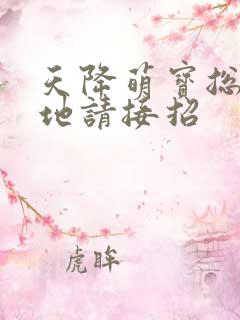 天降萌寶總
地請接招
虎眸